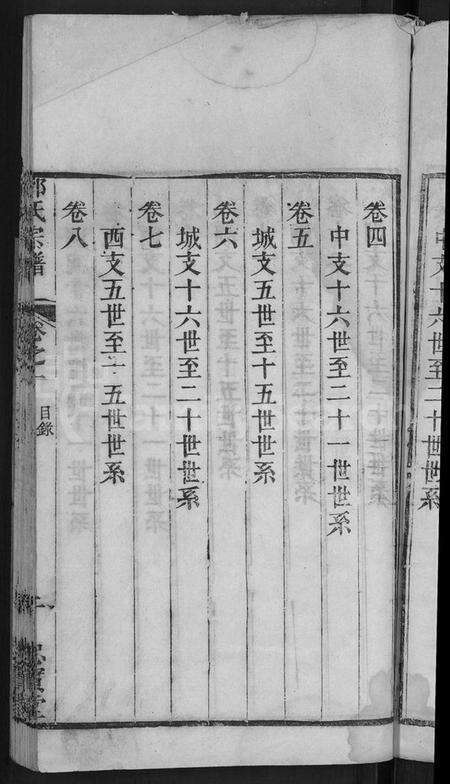 中支十六世至二十世世系
卷四
中支十六世至二十一世世系
卷五
城支五世至十五世世系
卷六
城支十六世至二十世世系
卷七
西支五世至十五世世系
卷八
氏宗譜
卷之一
目錄